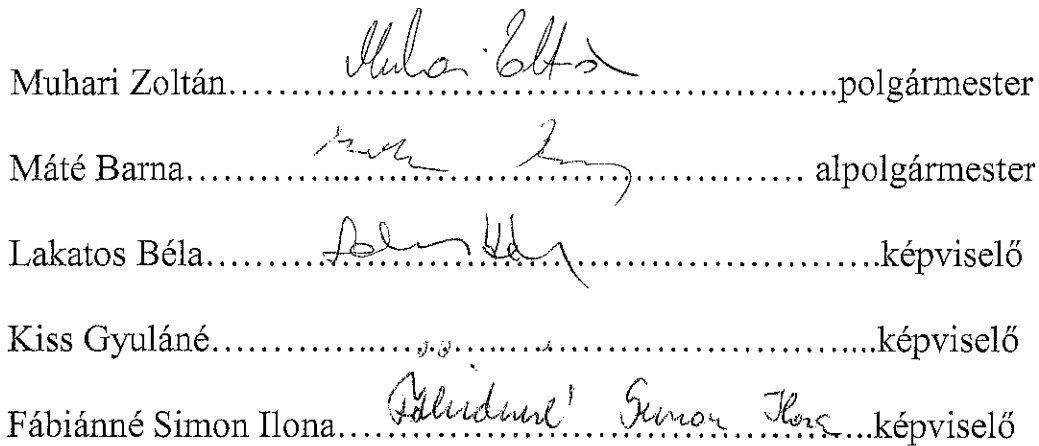 Muhari Zoltán……Muhari Zoltán……polgármester
Máté Barna……alpolgármester
Lakatos Béla……képviselő
Kiss Gyuláné……képviselő
Fábiánné Simon Ilona……Fábiánné Simon Ilona……képviselő